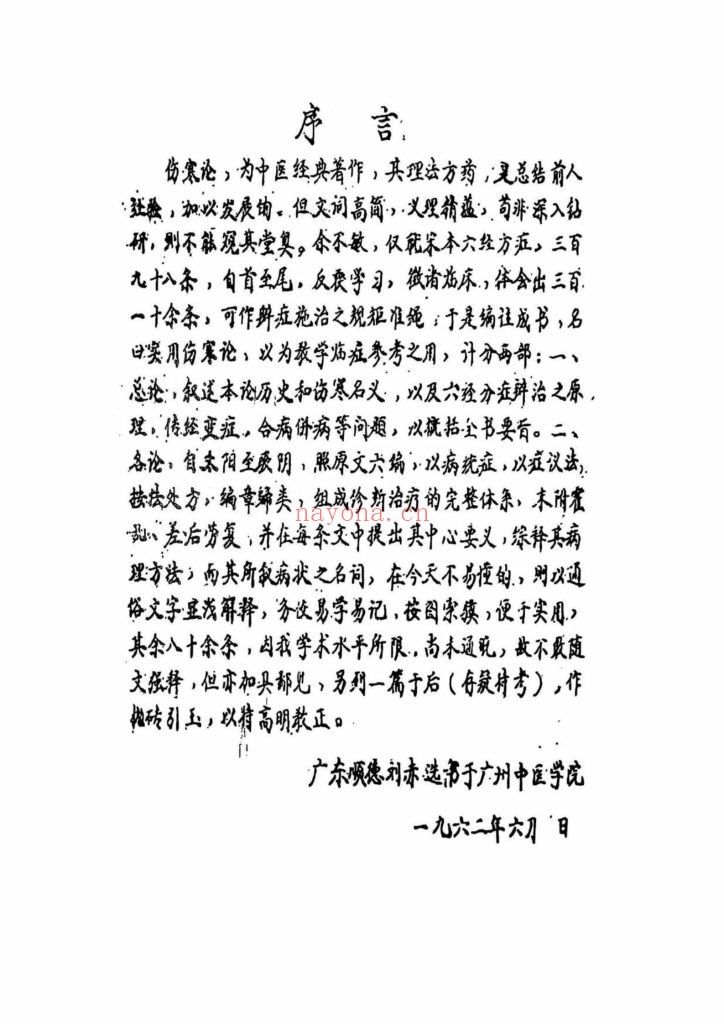 序 言
伤寒论，为中医经典著作，其理法方药，是总结前人
经验，加以发展的。但文词高简，义理精蕴，苟非深入钻
研，则不能窥其堂奥。余不敏，仅就宋本六经方症，三百
九十八条，自首至尾，反复学习，徵诸临床，体会出三百
一十余条，可作辨症施治之规矩准绳，于是编注成书，名
曰实用伤寒论，以为教学临症参考之用，计分两部：一、
总论，叙述本论历史和伤寒名义，以及六经分症辨治之原
理，传经变症，合病併病等问题，以概括全书要旨。二、
各论，自太阳至厥阴，照原文六编，以病统症，以症议法，
按法处方，编章归类，组成诊断治疗的完整体系，末附霍
乱、差后劳复，并在每条文中提出其中心要义，综释其病
理方法，而其所叙病状之名词，在今天不易懂的，则以通
俗文字显浅解释，务使易学易记，按图索骥，便于实用，
其余八十余条，因我学术水平所限，尚未通晓，故不敢随
文强释，但亦加具鄙见，另列一篇于后（存疑待考），作
抛砖引玉，以待高明教正。
广东顺德刘赤选序于广州中医学院
一九六二年六月 日
nayona.cn